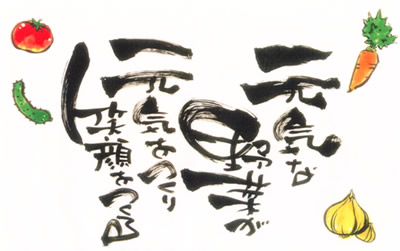 元気な
野菜が
元気をつくり
笑顔をつくる